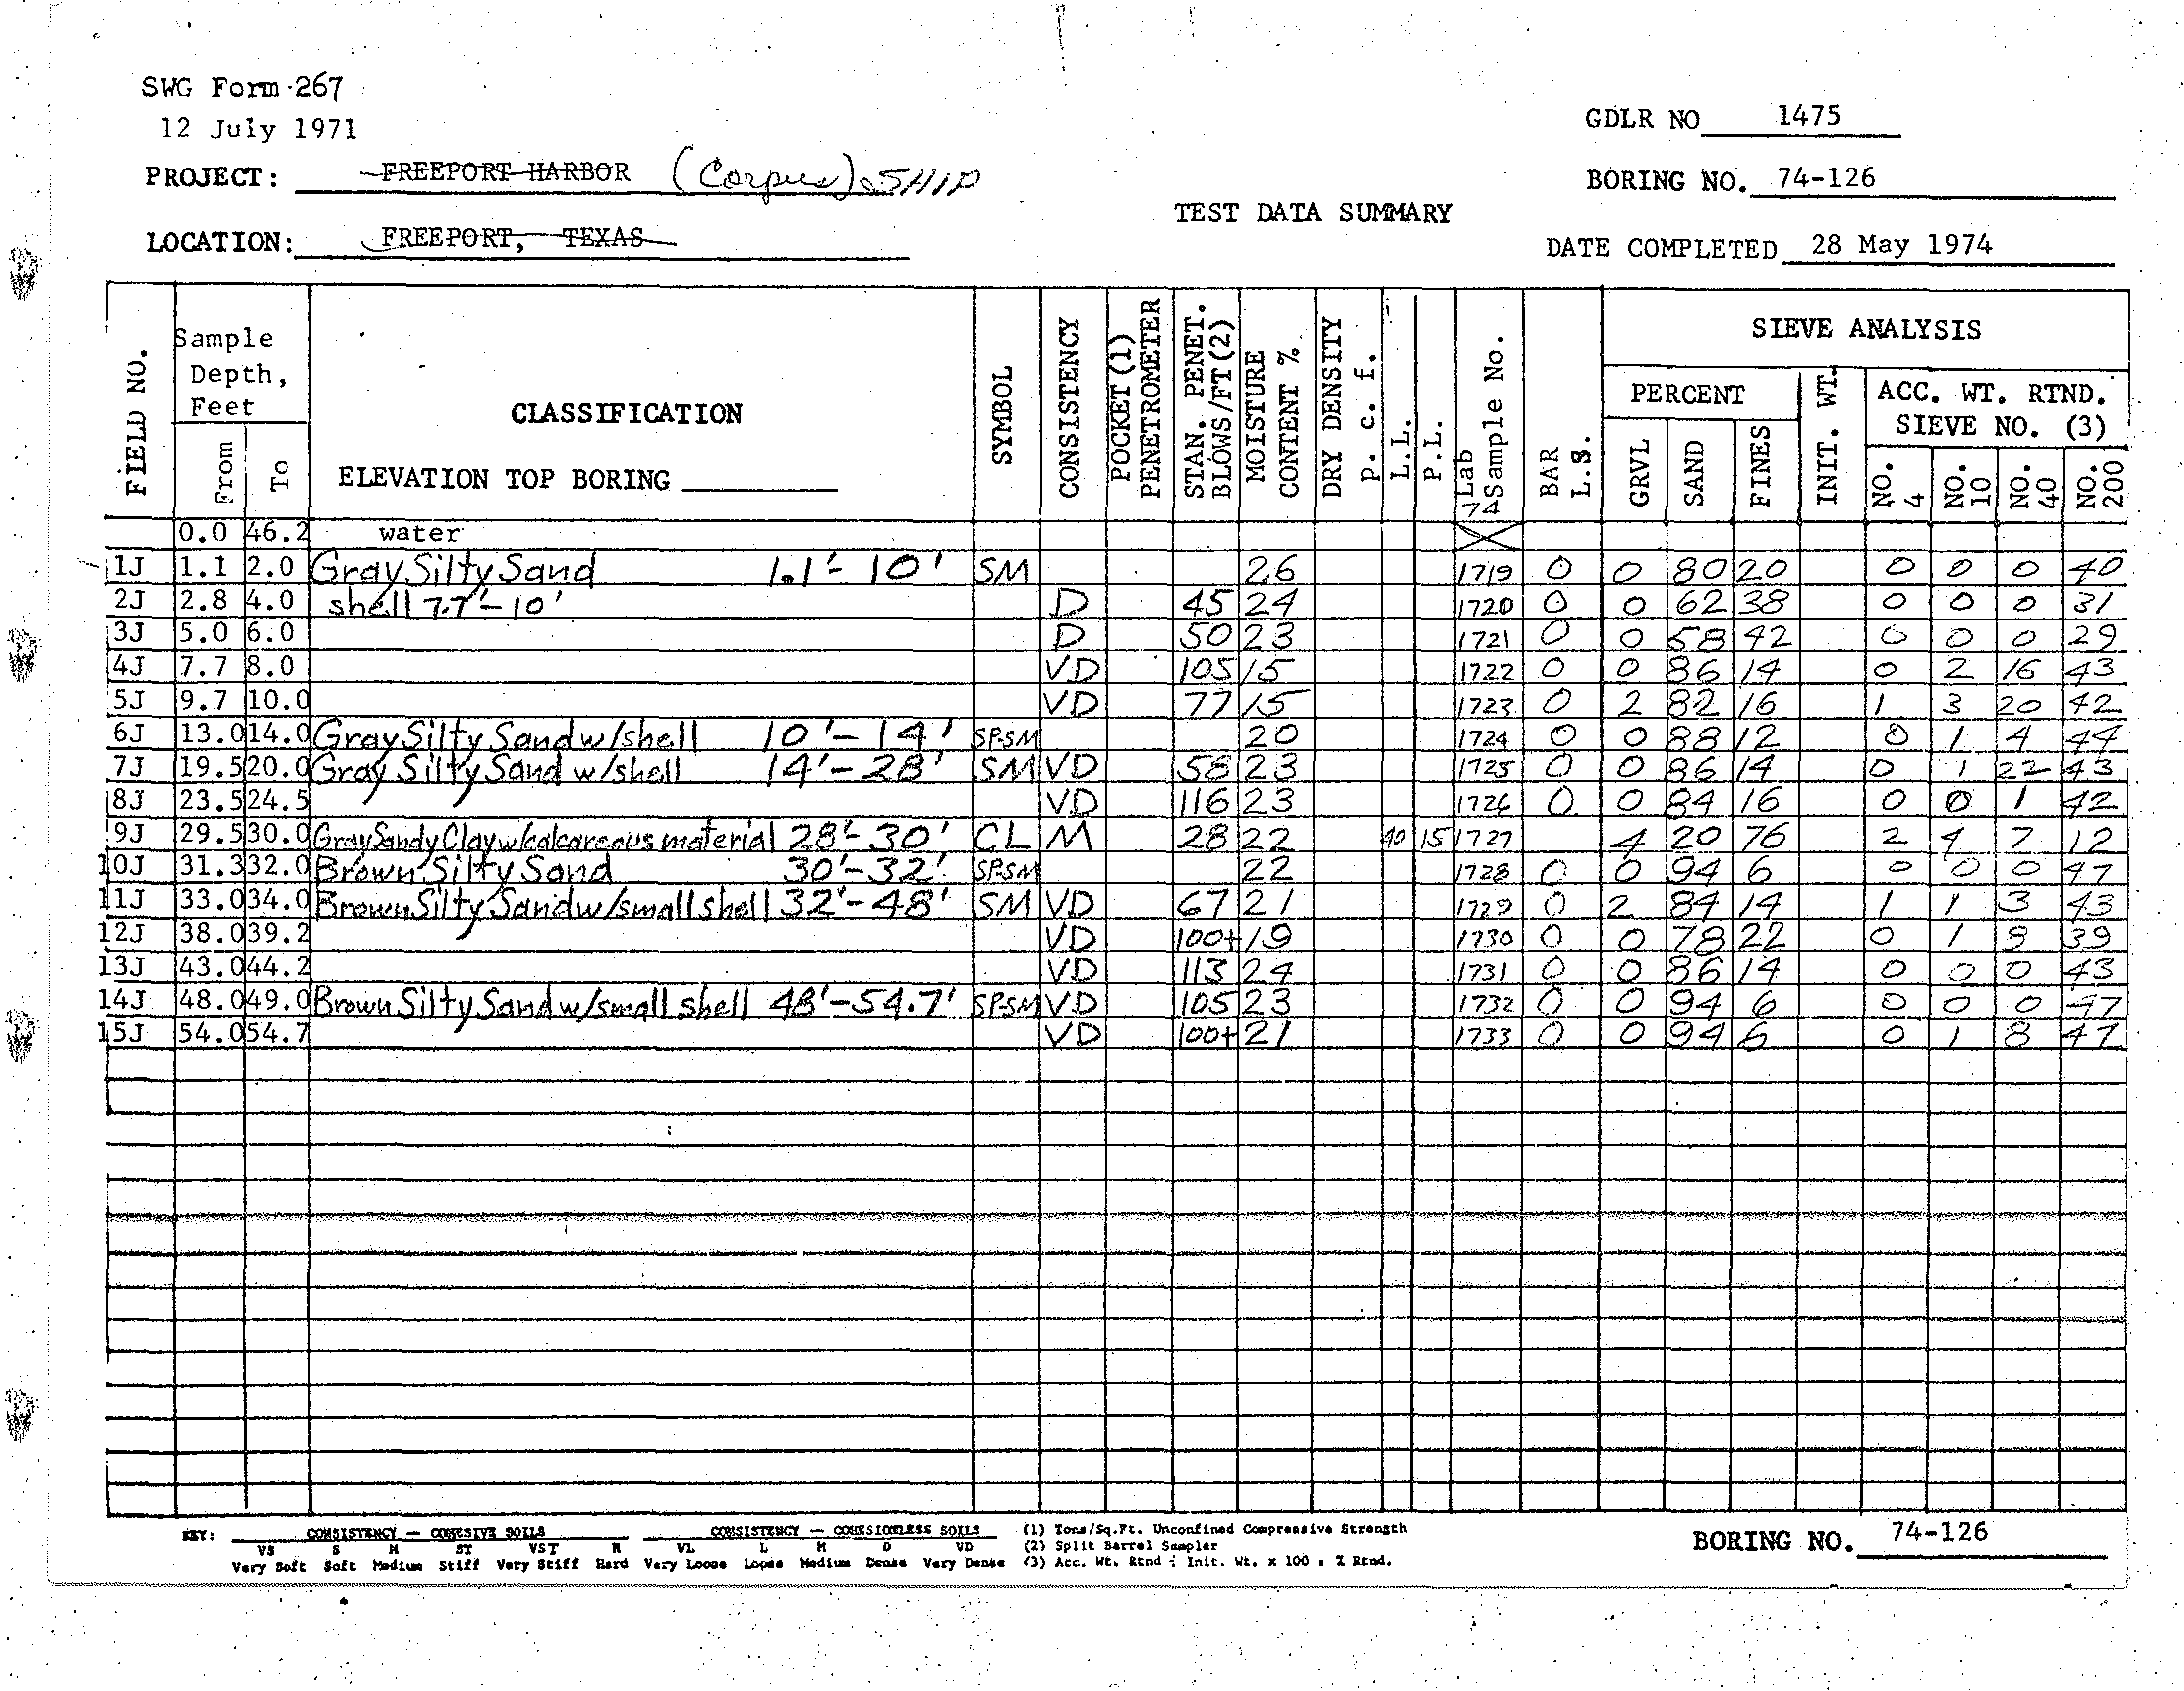 SWG Form 267
12 July 1971
GDLR NO 1475
PROJECT: FREEPORT HARBOR (Corpus) SHIP
BORING NO. 74-126
TEST DATA SUMMARY
LOCATION: FREEPORT, TEXAS
DATE COMPLETED 28 May 1974
FIELD NO. Sample Depth, Feet From To CLASSIFICATION ELEVATION TOP BORING SYMBOL CONSISTENCY POCKET (1) PENETROMETER STAN. PENET. BLOWS/FT (2) MOISTURE CONTENT % DRY DENSITY p. c. f. L.L. P.L. Lab Sample No. 74 BAR L.S. SIEVE ANALYSIS PERCENT GRVL SAND FINES INIT. WT. ACC. WT. RTND. SIEVE NO. (3) NO. 4 NO. 10 NO. 40 NO. 200
0.0 46.2 water
1J 1.1 2.0 Gray Silty Sand 1.1'- 10' SM 26 1719 0 0 80 20 0 0 0 40
2J 2.8 4.0 shell 7.7'-10' D 45 24 1720 0 0 62 38 0 0 0 31
3J 5.0 6.0 D 50 23 1721 0 0 58 42 0 0 0 29
4J 7.7 8.0 VD 105 15 1722 0 0 86 14 0 2 16 43
5J 9.7 10.0 VD 77 15 1723 0 2 82 16 1 3 20 42
6J 13.0 14.0 Gray Silty Sand w/shell 10'- 14' SP-SM 20 1724 0 0 88 12 0 1 4 44
7J 19.5 20.0 Gray Silty Sand w/shell 14'- 28' SM VD 58 23 1725 0 0 86 14 0 1 22 43
8J 23.5 24.5 VD 116 23 1726 0 0 84 16 0 0 1 42
9J 29.5 30.0 Gray Sandy Clay w/calcareous material 28'- 30' CL M 28 22 40 15 1727 4 20 76 2 4 7 12
10J 31.3 32.0 Brown Silty Sand 30'-32' SP-SM 22 1728 0 0 94 6 0 0 0 47
11J 33.0 34.0 Brown Silty Sand w/small shell 32'-48' SM VD 67 21 1729 0 2 84 14 1 1 3 43
12J 38.0 39.2 VD 100+ 19 1730 0 0 78 22 0 1 9 39
13J 43.0 44.2 VD 113 24 1731 0 0 86 14 0 0 0 43
14J 48.0 49.0 Brown Silty Sand w/small shell 48'-54.7' SP-SM VD 105 23 1732 0 0 94 6 0 0 0 47
15J 54.0 54.7 VD 100+ 21 1733 0 0 94 6 0 1 8 47
KEY: CONSISTENCY — COHESIVE SOILS CONSISTENCY — COHESIONLESS SOILS (1) Tons/Sq.Ft. Unconfined Compressive Strength
VS S M ST VST H VL L M D VD (2) Split Barrel Sampler
Very Soft Soft Medium Stiff Very Stiff Hard Very Loose Loose Medium Dense Very Dense (3) Acc. Wt. Rtnd ÷ Init. Wt. x 100 = % Rtnd.
BORING NO. 74-126